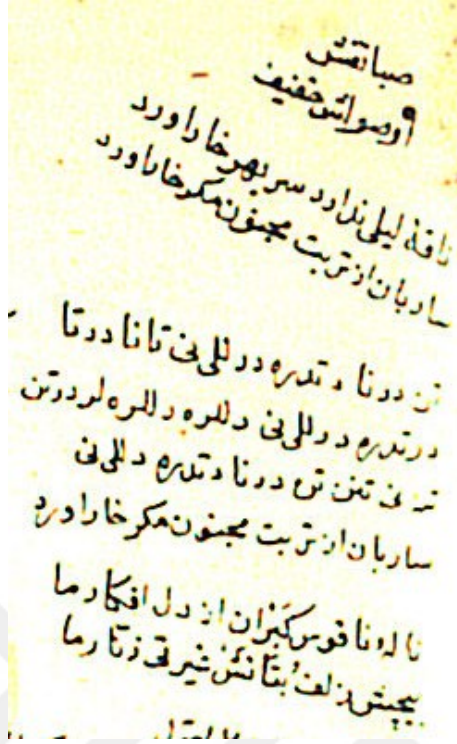 صبا نقش
اوصوائش خفیف
ناقهٔ لیلی ندارد سر بهر خار اورد
ساربان از تربت مجنون مکر خار اورد
تن دردنا دتدره دردللی نی تانا دردتا
درتدره دردللی نی دللره دللره لردرتن
تنی تنن تره دردنا دتدره دللی نی
ساربان از تربت مجنون مکر خار اورد
ناله ناقوس کبران از دل افکار ما
پیچش زلف بتانش غیرتی زنار ما